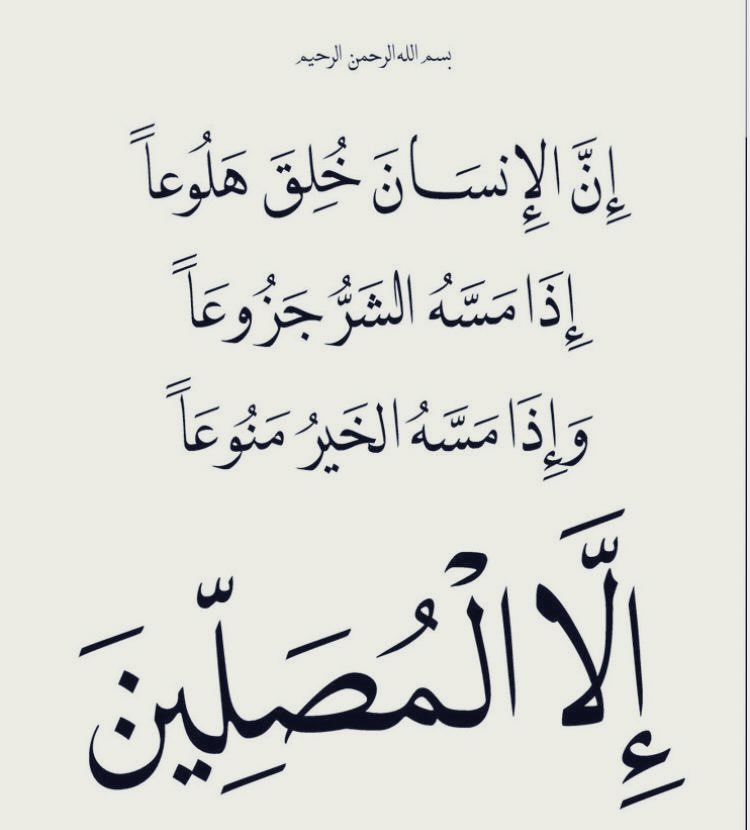 بسم الله الرحمن الرحيم
إِنَّ الإِنسَانَ خُلِقَ هَلُوعاً
إِذَا مَسَّهُ الشَرُّ جَزُوعَاً
وَإِذَا مَسَّهُ الخَيرُ مَنُوعَاً
إِلَّا الْمُصَلِّينَ